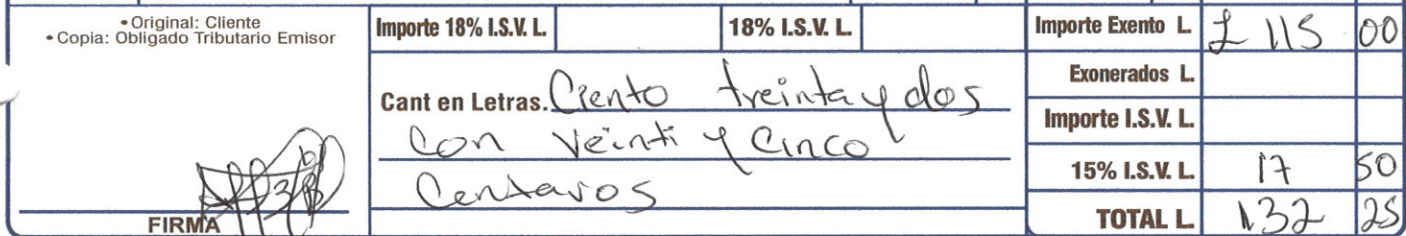 • Original: Cliente
• Copia: Obligado Tributario Emisor
FIRMA
Importe 18% I.S.V. L. 18% I.S.V. L.
Cant en Letras. Ciento treinta y dos
con veinti y cinco
Centavos
Importe Exento L. L 115 00
Exonerados L.
Importe I.S.V. L.
15% I.S.V. L. 17 50
TOTAL L. 132 25